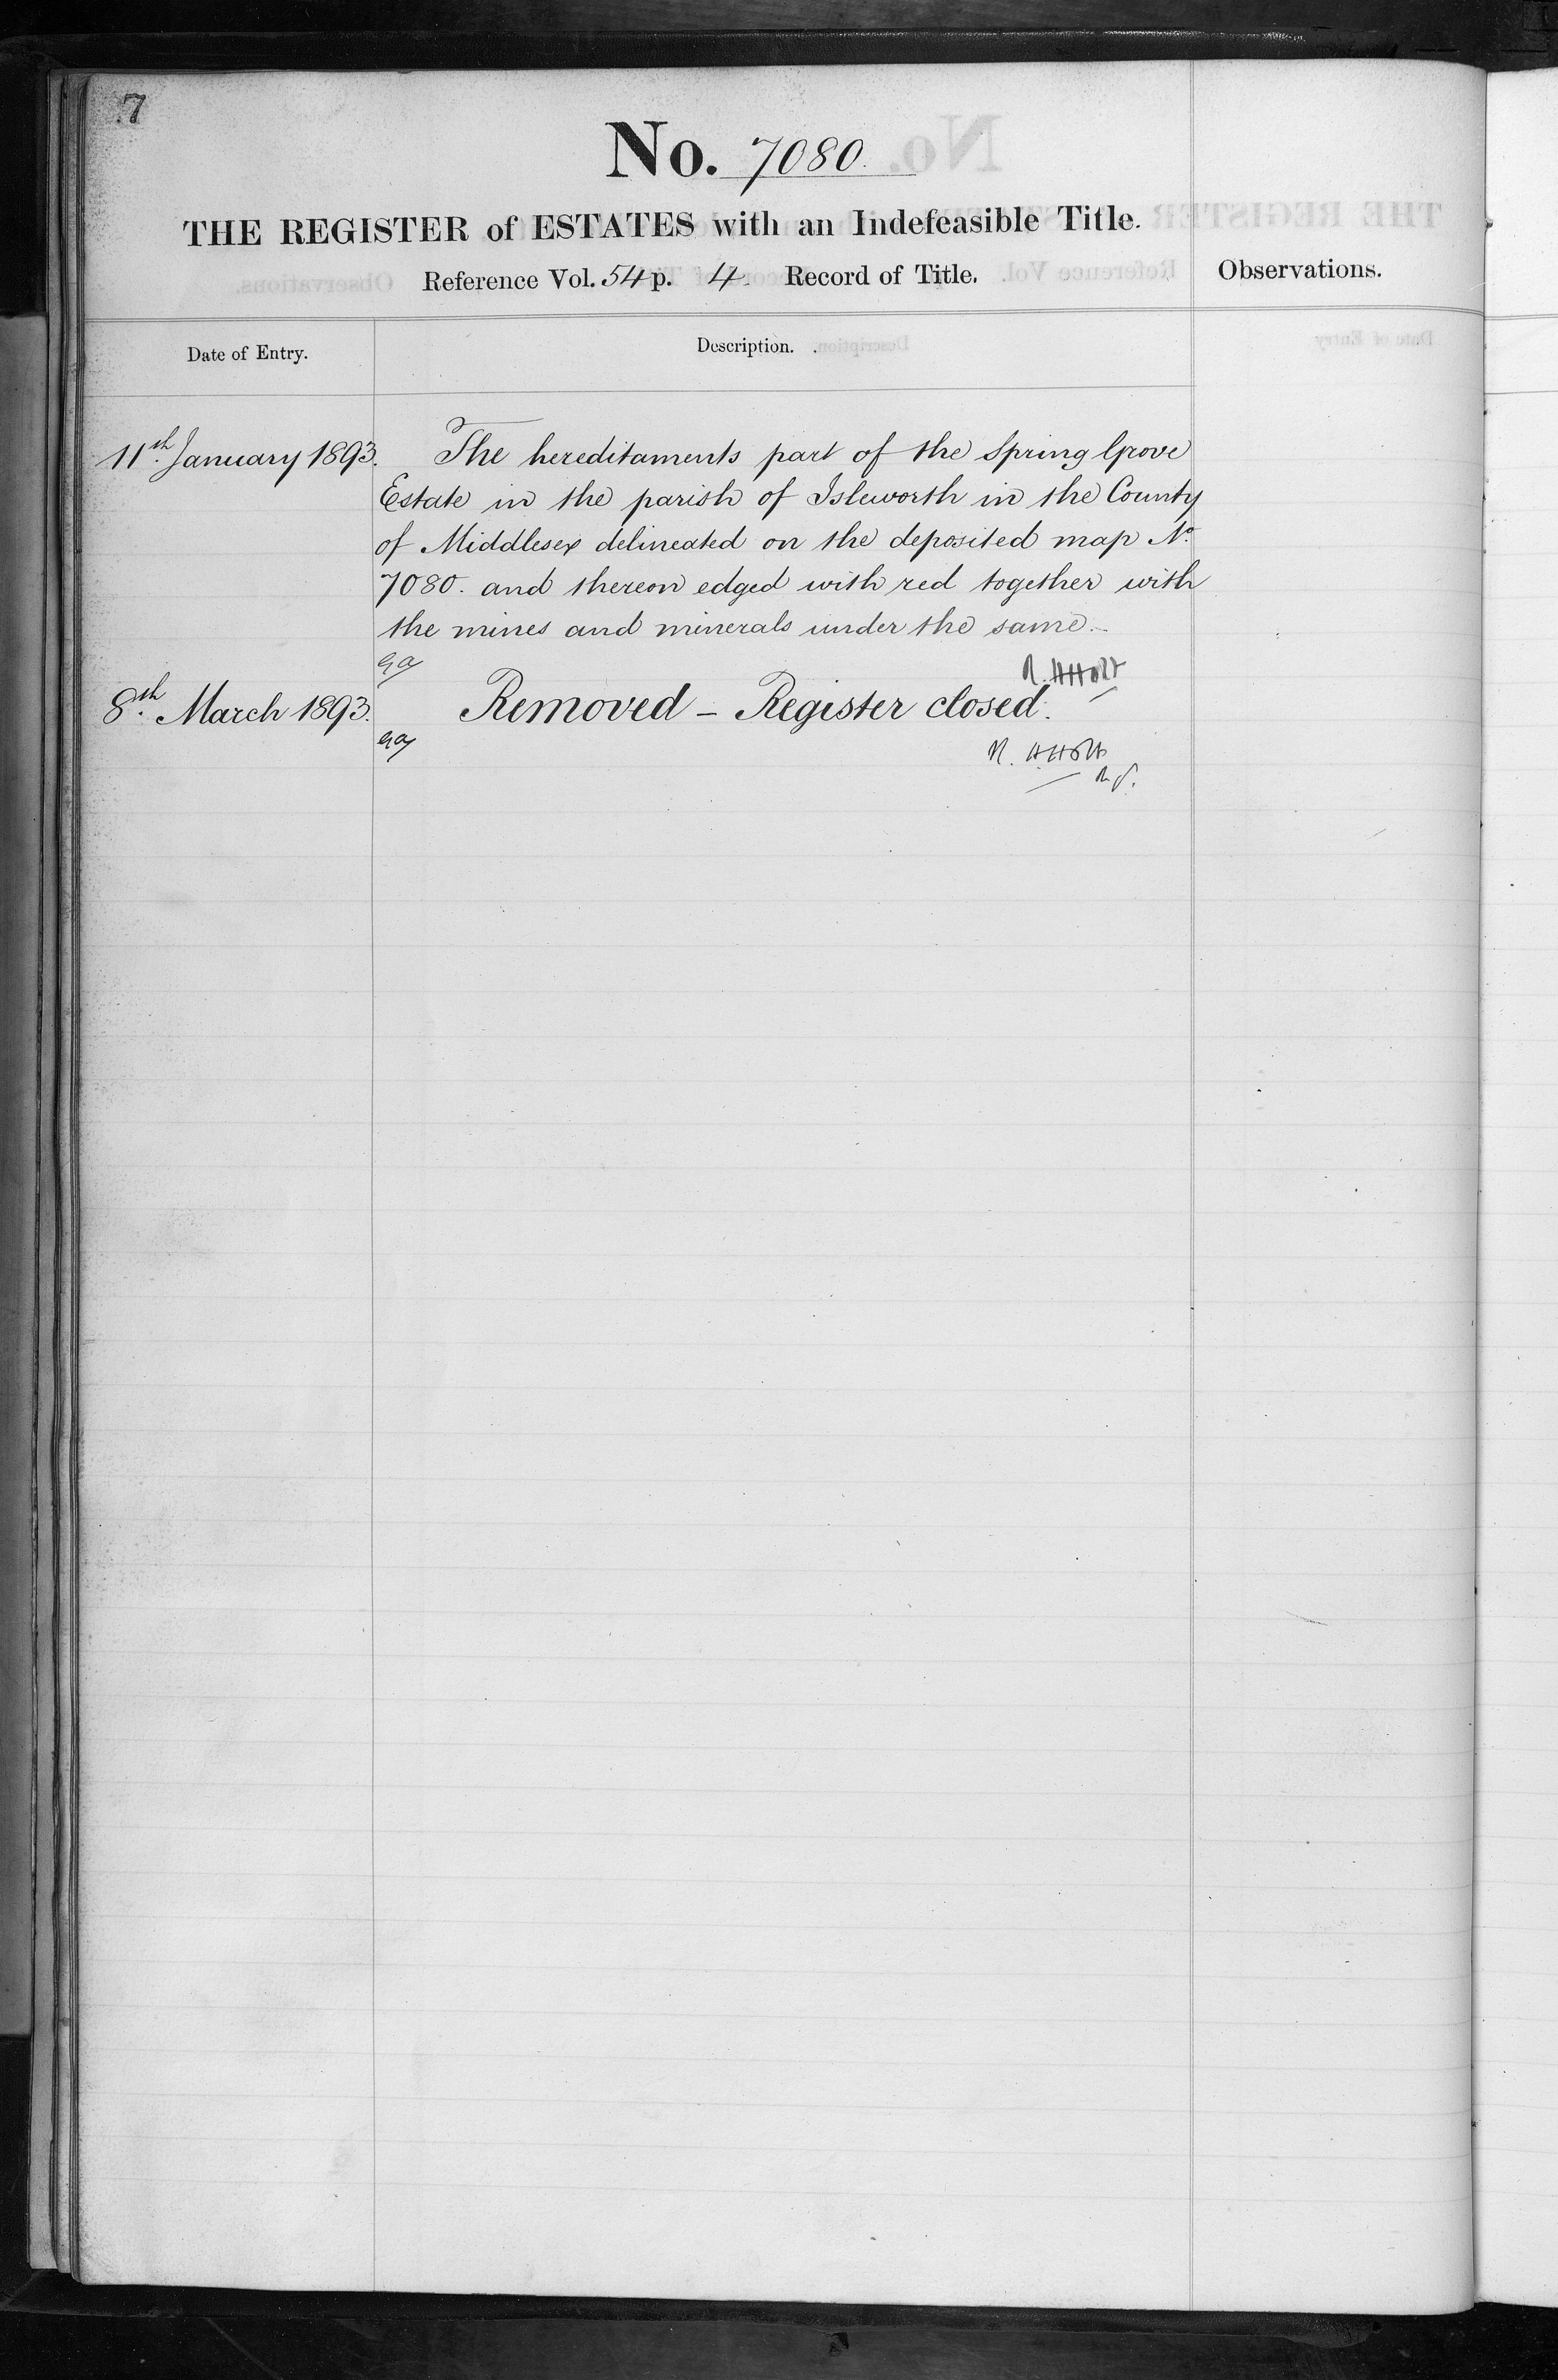 7
No. 7080.
THE REGISTER of ESTATES with an Indefeasible Title.
Reference Vol. 54 p. 4. Record of Title.
Observations.
Date of Entry.
Description.
11th January 1893. The hereditaments part of the Spring Grove
Estate in the parish of Isleworth in the County
of Middlesex delineated on the deposited map No.
7080. and thereon edged with red together with
the mines and minerals under the same.
8th March 1893. Removed – Register closed.